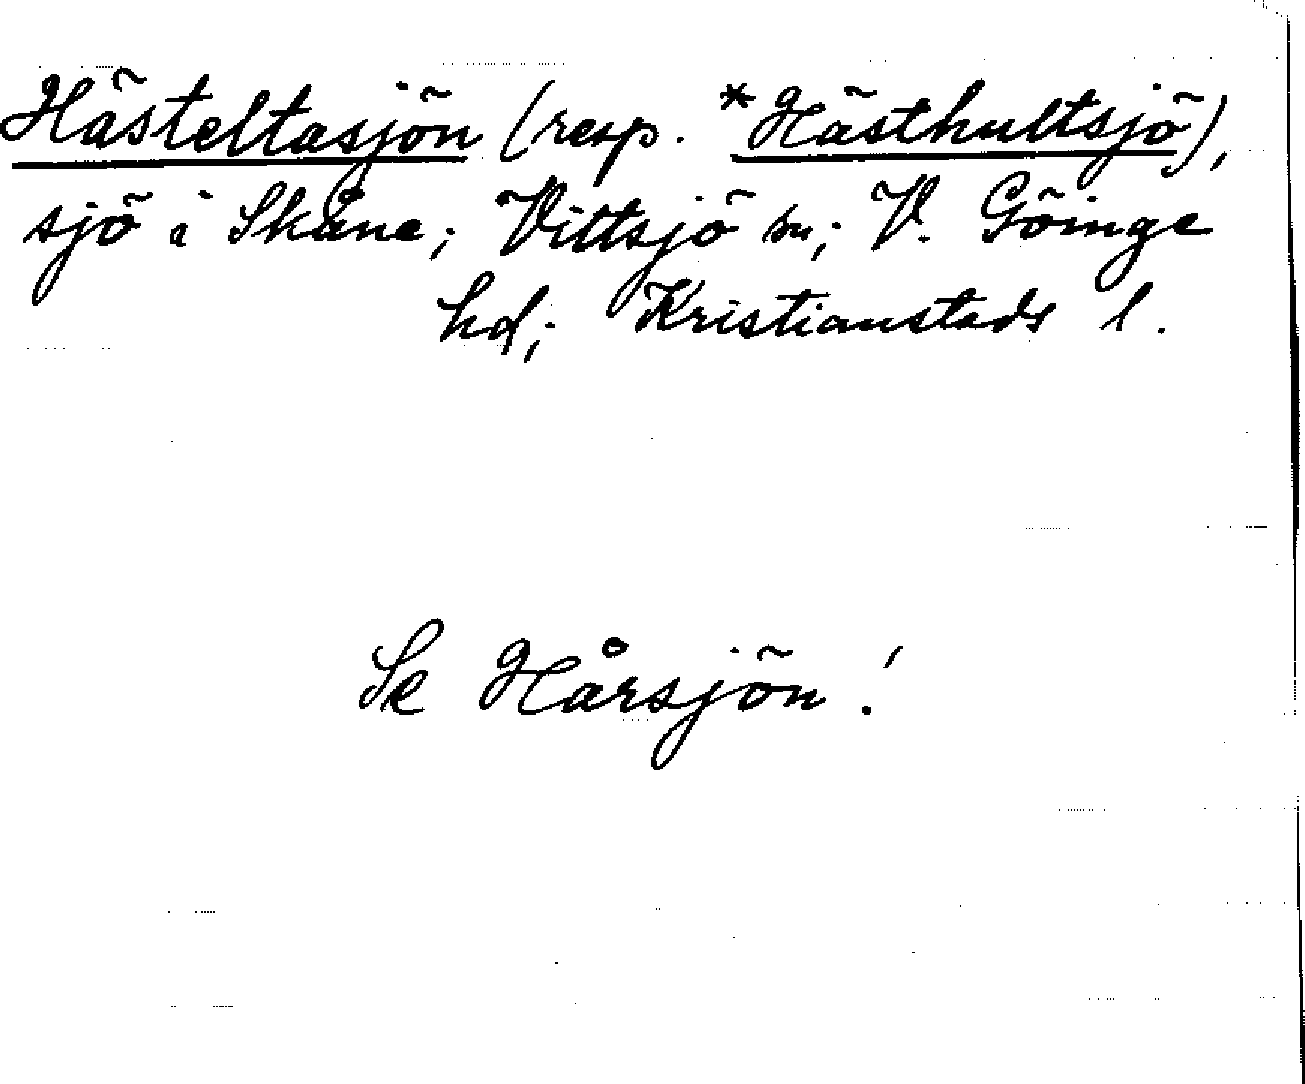 Hästeltasjön (resp. *Hästhultsjö),
sjö i Skåne; Vittsjö sn; V. Göinge
hd; Kristianstads l.
Se Hårsjön!